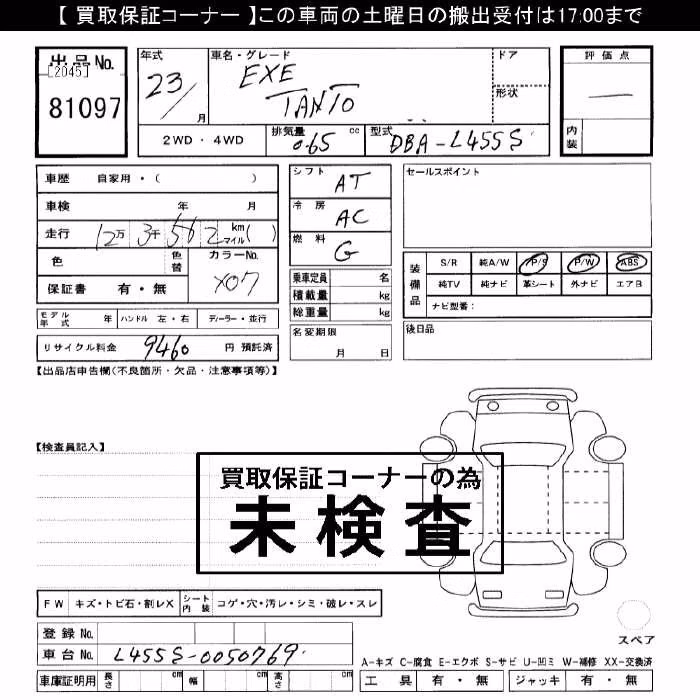 【 買取保証コーナー 】この車両の土曜日の搬出受付は17:00まで
出品No.
[2045]
81097
年式
23/
月
車名・グレード
EXE
TANTO
ドア
形状
評価点
—
内装
2WD ・ 4WD
排気量
0.65 cc
型式
DBA-L455S
車歴 自家用・( )
車検 年 月
走行 12万 3千 562 km マイル( )
色 色替 カラーNo.
X07
保証書 有・無
モデル年式 年 ハンドル 左・右 ディーラー・並行
リサイクル料金 9460 円 預託済
シフト AT
冷房 AC
燃料 G
乗車定員 名
積載量 kg
総重量 kg
名変期限
月 日
セールスポイント
装備品
S/R 純A/W P/S P/W ABS
純TV 純ナビ 革シート 外ナビ エアB
ナビ型番:
後日品
【出品店申告欄(不良箇所・欠品・注意事項等)】
【検査員記入】
買取保証コーナーの為
未検査
FW キズ・トビ石・割レX シート内装 コゲ・穴・汚レ・シミ・破レ・スレ
登録No.
車台No. L455S-0050769
車庫証明用 長さ cm 幅 cm 高さ cm
スペア
A-キズ C-腐食 E-エクボ S-サビ U-凹ミ W-補修 XX-交換済
工具 有・無 ジャッキ 有・無